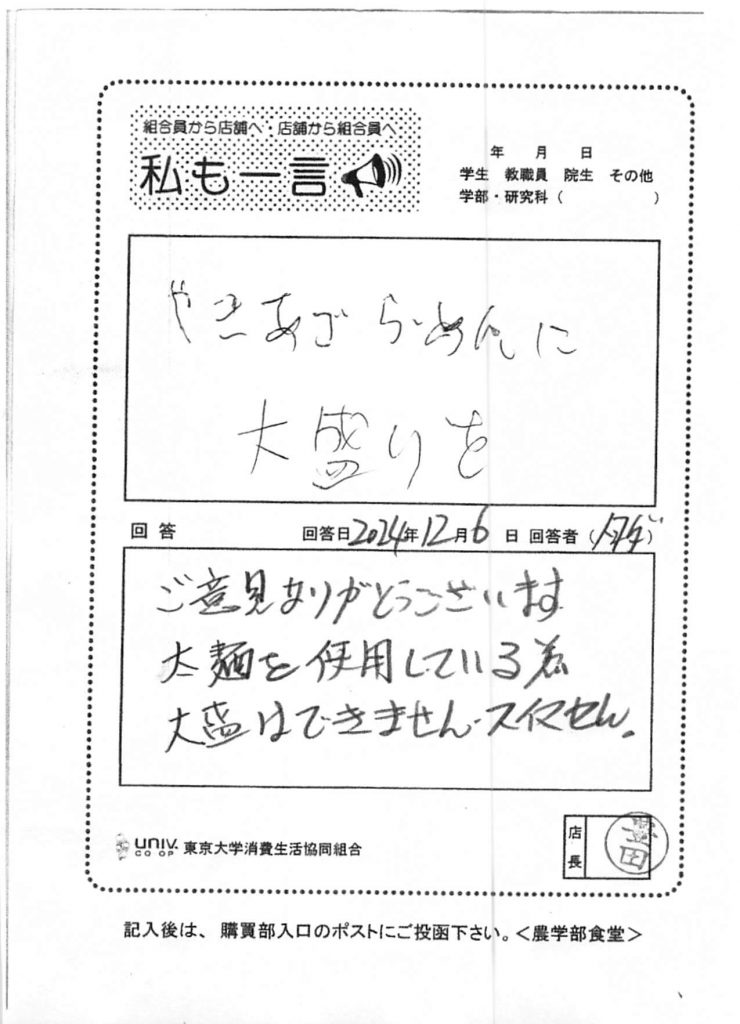 組合員から店舗へ・店舗から組合員へ
私も一言
年 月 日
学生 教職員 院生 その他
学部・研究科（ ）
やきあごらーめんに
大盛りを
回答 回答日2024年12月6日 回答者（ ）
ご意見ありがとうございます
太麺を使用している為
大盛はできません。スイマせん。
univ.
CO・OP 東京大学消費生活協同組合
店長
記入後は、購買部入口のポストにご投函下さい。＜農学部食堂＞